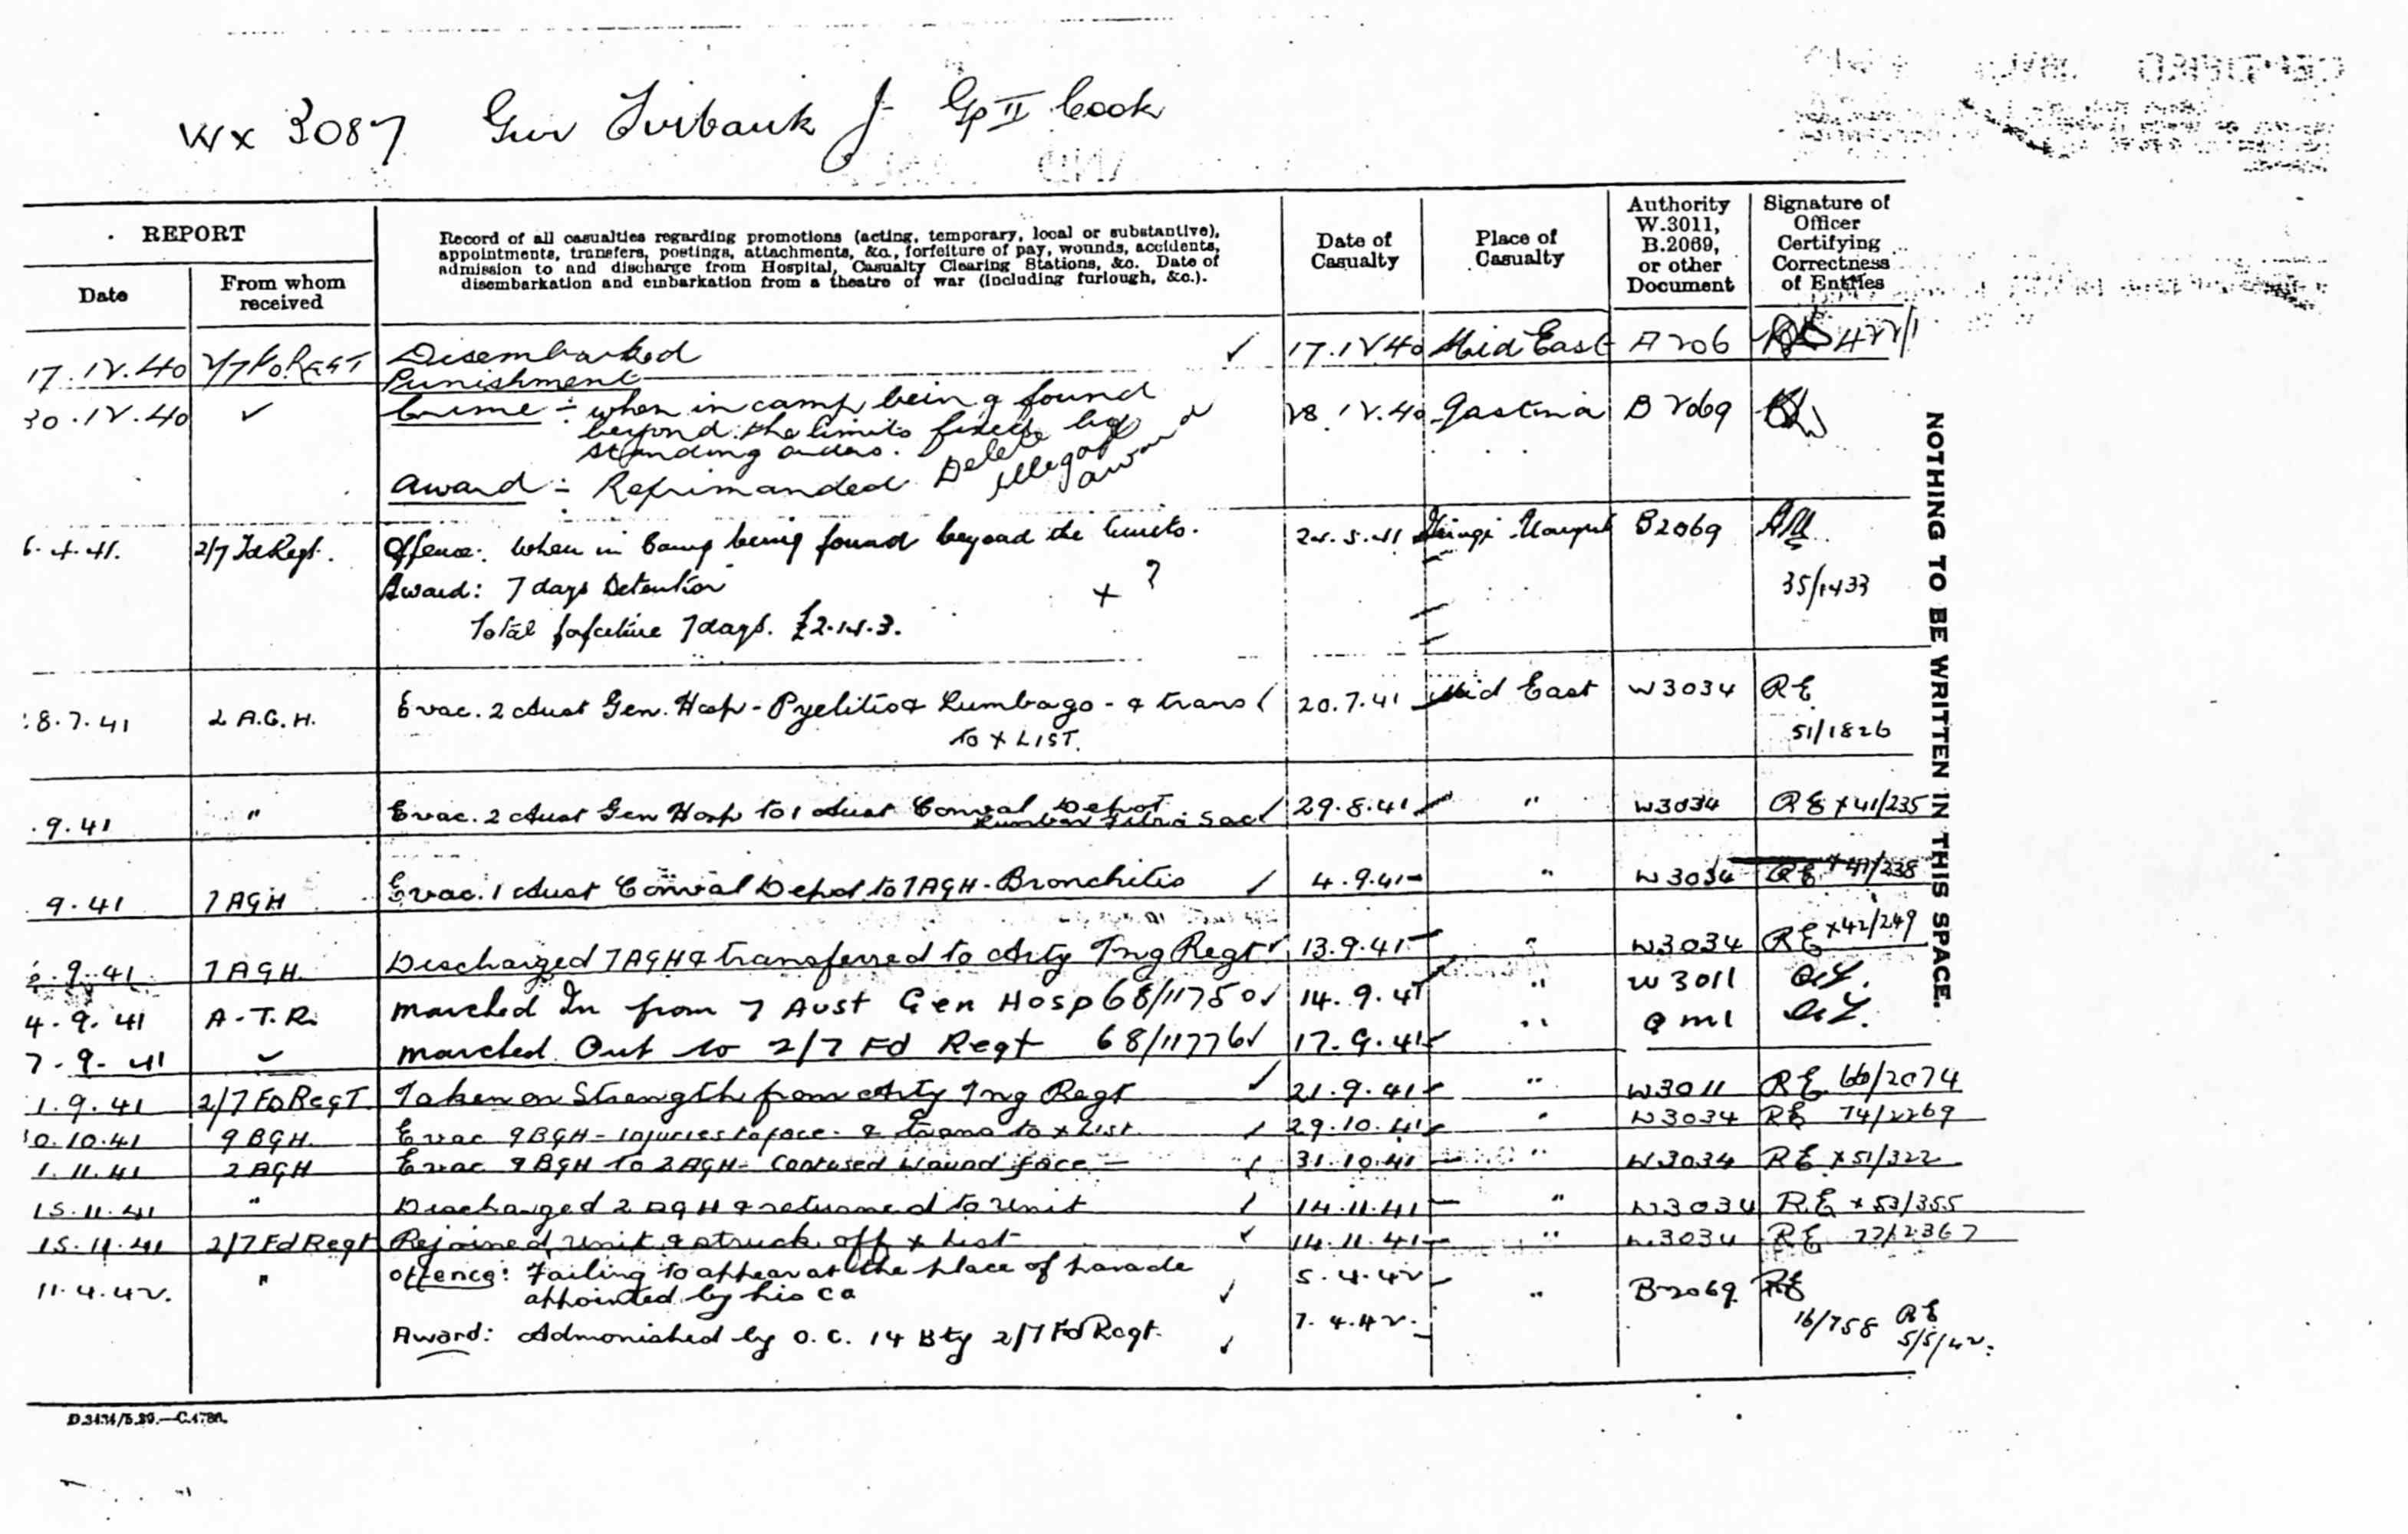 WX 3087 Gnr Firbank J Gp II Cook
REPORT
Date
From whom received
Record of all casualties regarding promotions (acting, temporary, local or substantive),
appointments, transfers, postings, attachments, &c., forfeiture of pay, wounds, accidents,
admission to and discharge from Hospital, Casualty Clearing Stations, &c. Date of
disembarkation and embarkation from a theatre of war (including furlough, &c.).
Date of Casualty
Place of Casualty
Authority W.3011, B.2069, or other Document
Signature of Officer Certifying Correctness of Entries
17.12.40 2/7 Fd Regt Disembarked ✓ 17.12.40 Mid East A206
Punishment
30.12.40 ✓ Crime :- when in camp being found 28.12.40 Gastina B2069
beyond the limits fixed by
standing orders.
Award :- Reprimanded Delete illegal award
6.4.41. 2/7 Fd Regt. Offence: When in Camp being found beyond the limits. B2069
Award: 7 days Detention x ? 35/1433
Total forfeiture 7 days. £2.14.3.
8.7.41 2 A.G.H. Evac. 2 Aust Gen. Hosp - Pyelitis & Lumbago - & trans 20.7.41 Mid East W3034 RE
to X LIST. 51/1826
.9.41 " Evac. 2 Aust Gen Hosp to 1 Aust Conval Depot 29.8.41 " W3034 RE x41/235
9.41 7 AGH Evac. 1 Aust Conval Depot to 7 AGH - Bronchitis ✓ 4.9.41 " W3034 RE x41/238
.9.41 7 AGH. Discharged 7 AGH & transferred to Arty Tng Regt ✓ 13.9.41 " W3034 RE x42/249
4.9.41 A.T.R. Marched In from 7 Aust Gen Hosp 68/11750 ✓ 14.9.41 " W3011
7.9.41 ✓ Marched Out to 2/7 Fd Regt 68/11776 ✓ 17.9.41 "
1.9.41 2/7 Fd Regt. Taken on Strength from Arty Tng Regt ✓ 21.9.41 " W3011 RE 66/2074
0.10.41 9 BGH. Evac 9 BGH - Injuries to face - & trans to X List. ✓ 29.10.41 " W3034 RE 74/2269
1.11.41 2 AGH Evac 9 BGH to 2 AGH - Contused Wound face - ✓ 31.10.41 " W3034 RE x51/322
15.11.41 " Discharged 2 AGH & returned to Unit ✓ 14.11.41 " W3034 RE x53/355
15.11.41 2/7 Fd Regt Rejoined Unit & struck off X List ✓ 14.11.41 " W3034 RE 77/2367
11.4.42. " Offence: Failing to appear at the place of parade 5.4.42 " B2069 RE
appointed by his CO ✓ 16/758 RE
Award: Admonished by O.C. 14 Bty 2/7 Fd Regt. ✓ 7.4.42. 5/5/42.
NOTHING TO BE WRITTEN IN THIS SPACE.